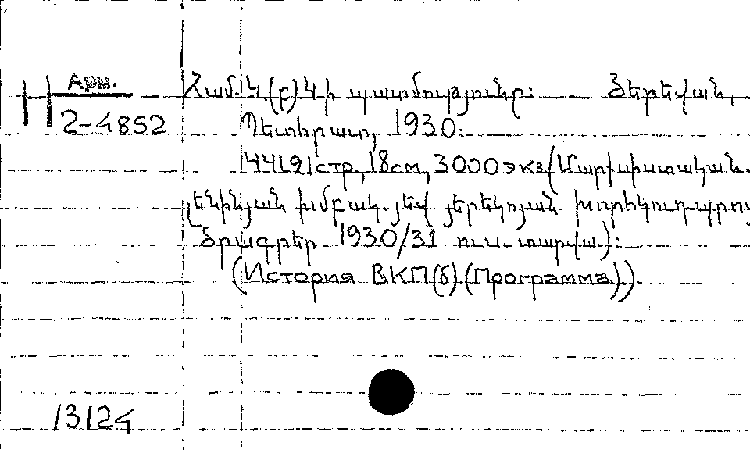 Арм.
2-4852
Համ. Կ.(բ)Կ-ի պատմությունը: Յերեվան,
Պետհրատ, 1930.
44[2] стр, 18 см, 3000 экз (Մարքսիստական-
լենինյան խմբակ. յեվ յերեկոյան
Ծրագրեր 1930/31 ուս. տարվա):
(История ВКП(б) (Программа)).
13124